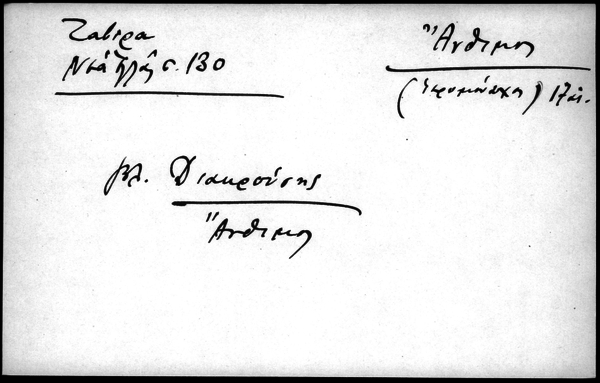 Ζαβιρα
Νέα Ἑλλάς σ. 130
Ἄνθιμος
(ἱερομόναχος) 17 αἰ.
βλ. Διακρούσης
Ἄνθιμος